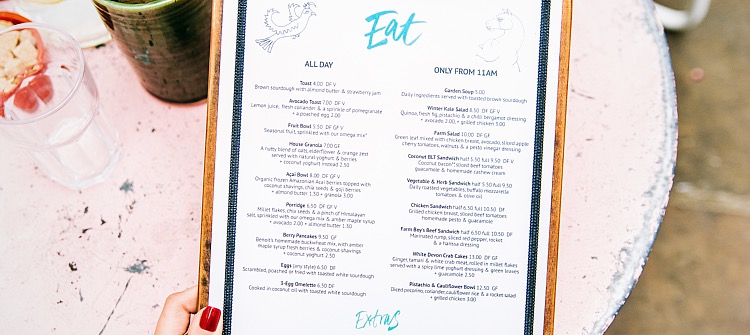 Eat
ALL DAY
Toast 4.00 DF V
Brown sourdough with almond butter & strawberry jam
Avocado Toast 7.00 DF V
Lemon juice, fresh coriander & a sprinkle of pomegranate
+ a poached egg 2.00
Fruit Bowl 5.50 DF GF V
Seasonal fruit, sprinkled with our omega mix*
House Granola 7.00 GF V
A nutty blend of oats, elderflower & orange zest
served with natural yoghurt & berries
+ coconut yoghurt instead 2.50
Açaí Bowl 8.00 DF V
Organic frozen Amazonian Açaí berries topped with
coconut shavings, chia seeds & goji berries
+ almond butter 1.50 + granola 3.00
Porridge 6.50 DF V
Millet flakes, chia seeds & a pinch of Himalayan
Salt, sprinkled with our omega mix & amber maple syrup
+ avocado 2.00 + almond butter 1.50
Berry Pancakes 9.50 GF
Benoit's homemade buckwheat mix, with amber
maple syrup fresh berries & coconut shavings
+ coconut yoghurt 2.50
Eggs (any style) 6.50 DF
Scrambled, poached or fried with toasted white sourdough
3-Egg Omelette 6.50 DF
Cooked in coconut oil with toasted white sourdough
ONLY FROM 11AM
Garden Soup 5.00
Daily ingredients served with toasted brown sourdough
Winter Kale Salad 8.50 DF GF V
Quinoa, fresh fig, pistachio & a chili bergamot dressing
+ avocado 2.00, + grilled chicken 3.00
Farm Salad 10.00 DF GF
Green leaf mixed with chicken breast, avocado, sliced apple
cherry tomatoes, walnuts & pesto vinegar dressing
Coconut BLT Sandwich half 5.50 full 9.50 DF V
Coconut bacon*, sliced beef tomatoes
guacamole & homemade cashew cream
Vegetable & Herb Sandwich half 5.50 full 9.50
Daily roasted vegetables, buffalo mozzarella
tomatoes & olive oil
Chicken Sandwich half 6.50 full 10.50 DF
Grilled chicken breast, sliced beef tomatoes
homemade pesto & guacamole
Farm Boy's Beef Sandwich half 6.50 full 10.50 DF
Marinated rump, sliced red pepper, rocket
& a harissa dressing
White Devon Crab Cakes 13.00 DF GF
Ginger, tamari & white crab meat, rolled in millet flakes
served with a spicy lime yoghurt dressing & green leaves
+ guacamole 2.50
Pistachio & Cauliflower Bowl 12.50 GF
Sliced pecorino, coriander, cauliflower rice & a rocket salad
+ grilled chicken 3.00
Extras